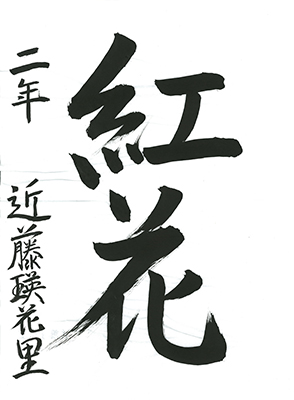 紅花
二年 近藤瑛花里